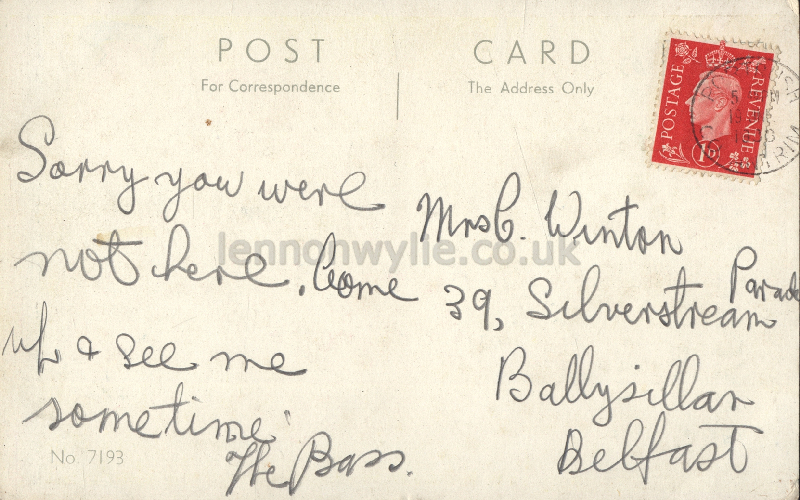 POST CARD
For Correspondence The Address Only
POSTAGE REVENUE
1D
Sorry you were
not here. Come
up & see me
sometime
The Bass.
Mrs C. Winton
39, Silverstream Parade
Ballysillan
Belfast
No. 7193
lennonwylie.co.uk